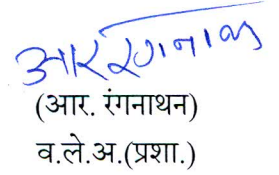 आर रंगनाथन
(आर. रंगनाथन)
व.ले.अ.(प्रशा.)